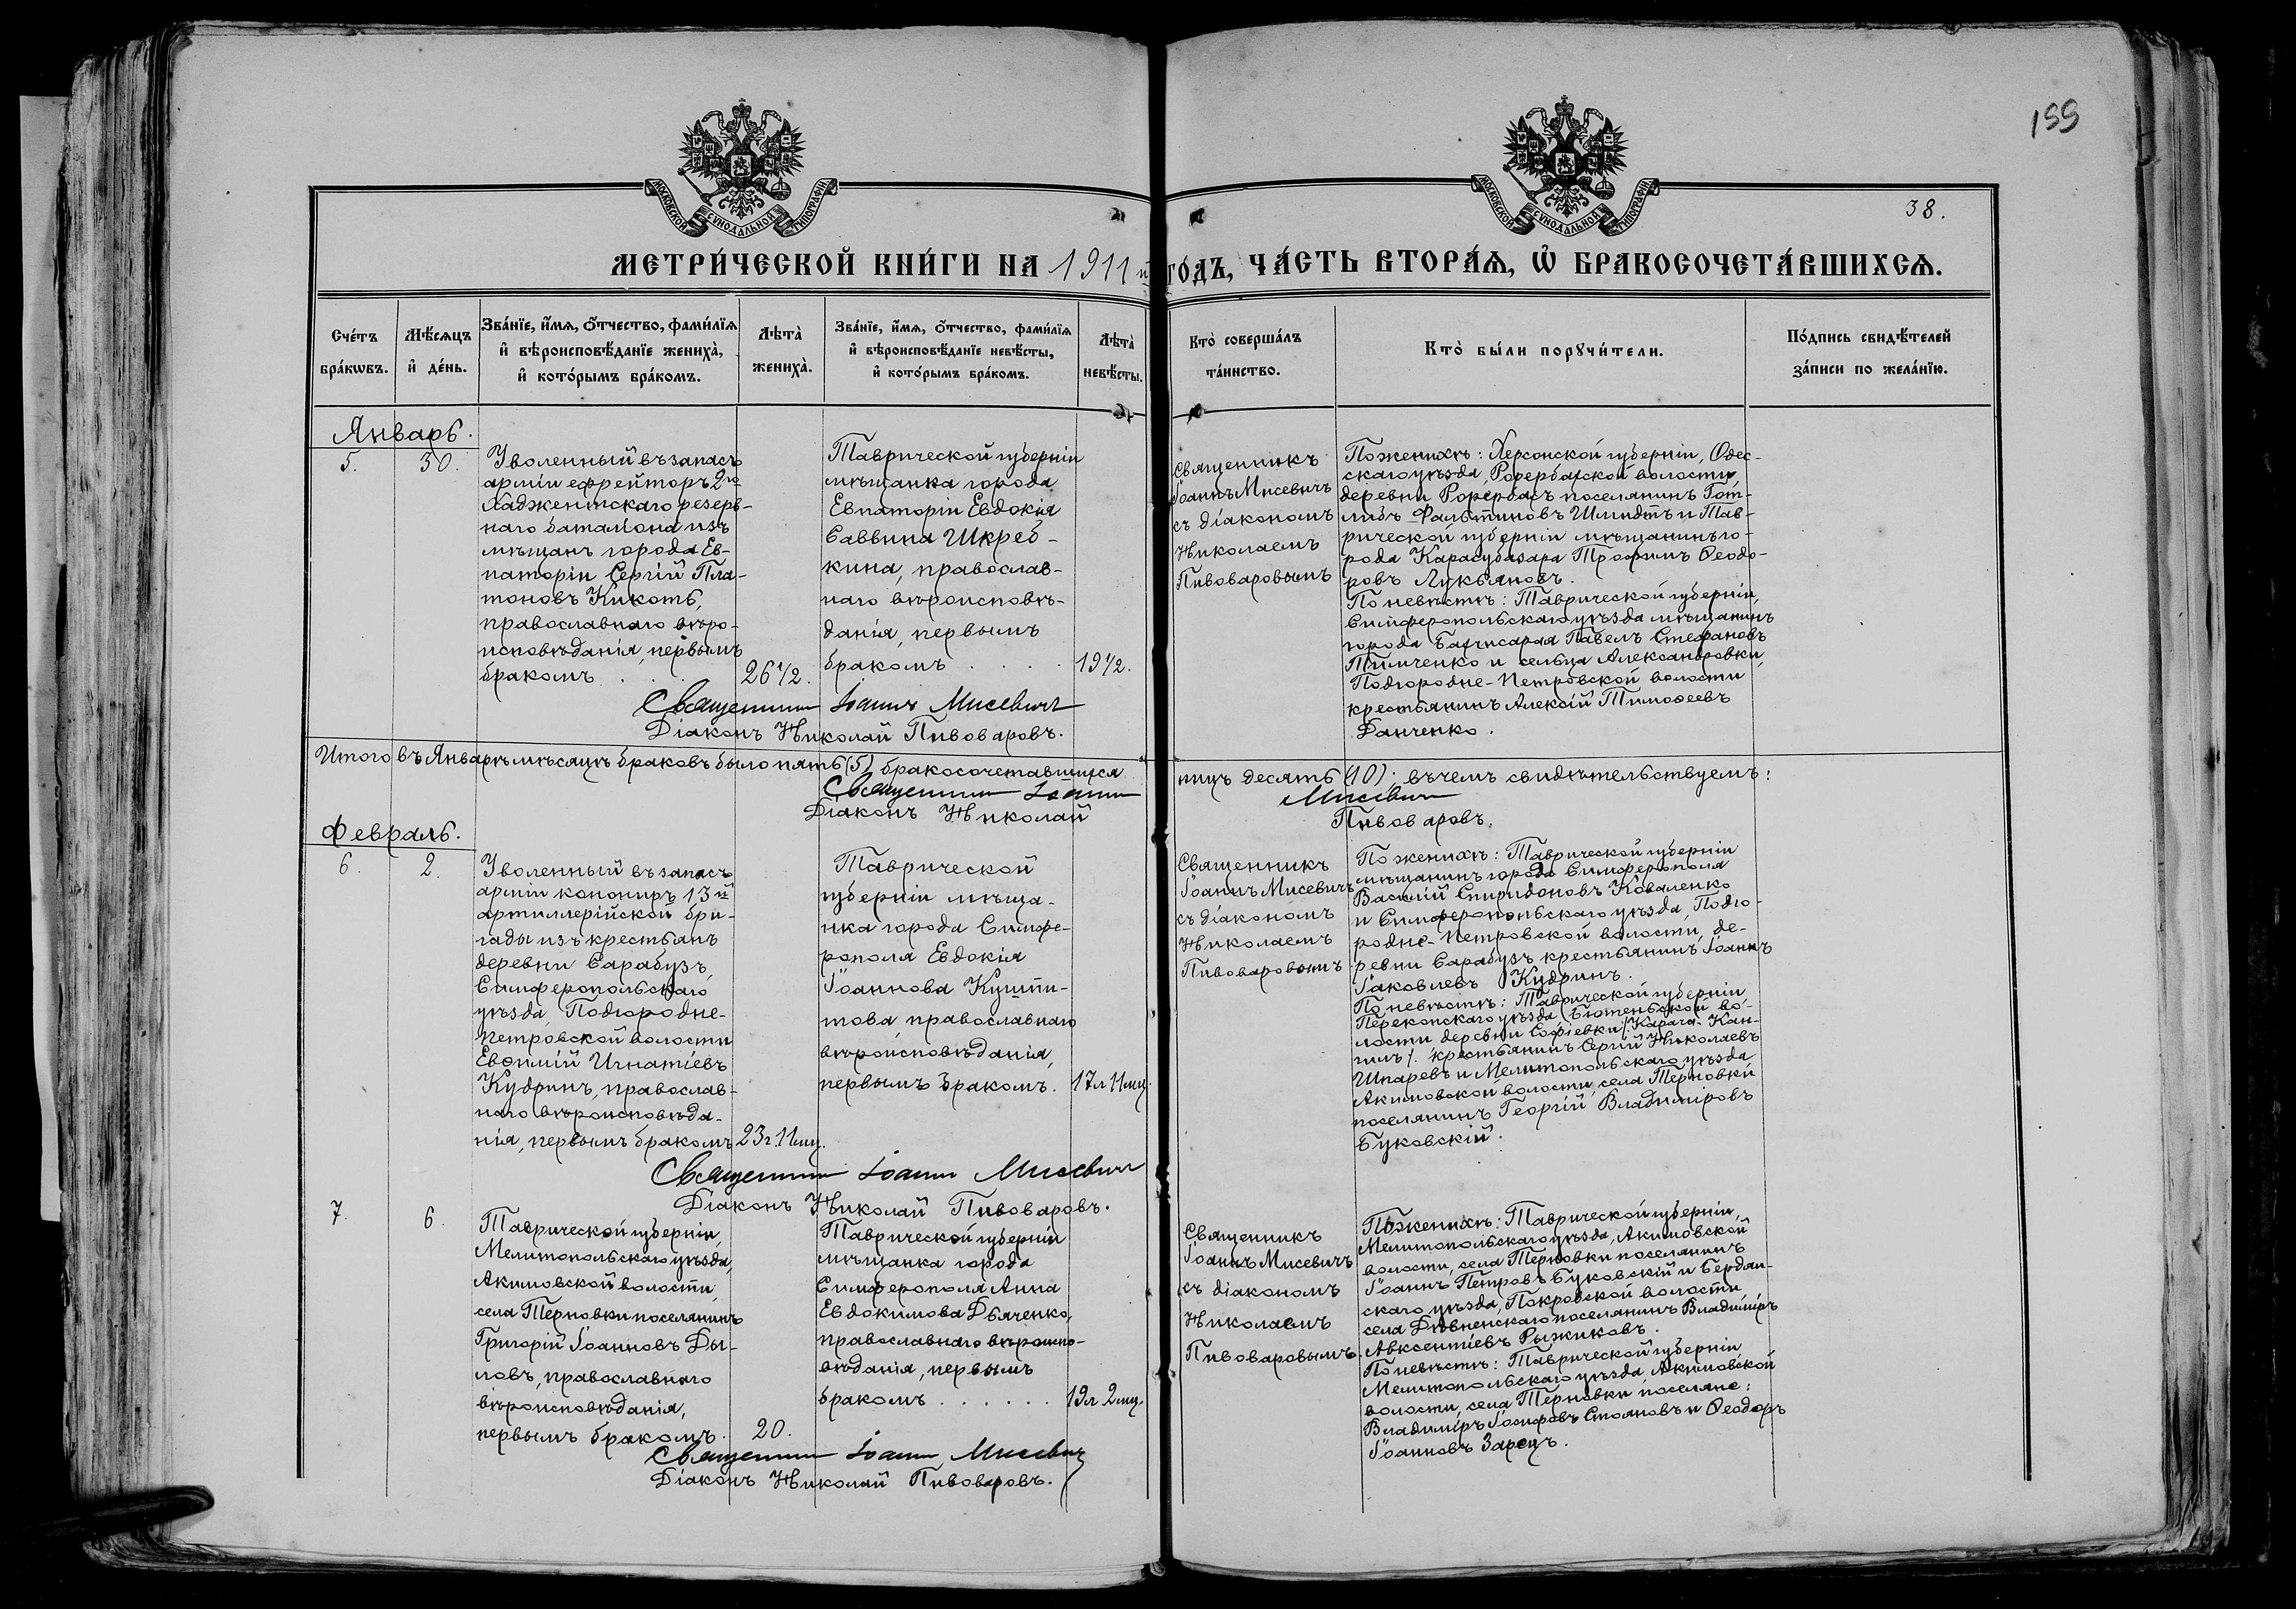 199
38.
МОСКОВСКОЙ СУНОДАЛЬНОЙ ТИПОГРАФІИ
МОСКОВСКОЙ СУНОДАЛЬНОЙ ТИПОГРАФІИ
МЕТРИ́ЧЕСКОЙ КНИ́ГИ НА 1911й ГО́ДЪ, ЧА́СТЬ ВТОРА́Ѧ, Ѡ҆ БРАКОСОЧЕТА́ВШИХСѦ.
Сче́тъ
бра́кѡвъ.
Мѣ́сѧцъ
и҆ де́нь.
Зва́нїе, и҆́мѧ, ѻ҆́тчество, фами́лїѧ
и҆ вѣроисповѣ́данїе жениха̀,
и҆ кото́рымъ бра́комъ.
Лѣта̀
жениха̀.
Зва́нїе, и҆́мѧ, ѻ҆́тчество, фами́лїѧ
и҆ вѣроисповѣ́данїе невѣ́сты,
и҆ кото́рымъ бра́комъ.
Лѣта̀
невѣ́сты.
Кто̀ соверша́лъ
та́инство.
Кто̀ бы́ли порꙋчи́тели.
По́дпись свидѣ́телей
за́писи по жела́нїю.
Январь.
5.
30.
Уволенный въ запасъ
арміи ефрейторъ 2го
Ходжентскаго резерв-
наго баталіона изъ
мѣщанъ города Ев-
паторіи Сергій Пла-
тоновъ Кикоть,
православнаго вѣро-
исповѣданія, первымъ
бракомъ . . .
26 1/2.
Таврической губерніи
мѣщанка города
Евпаторіи Евдокія
Саввина Шкреб-
кина, православ-
наго вѣроисповѣ-
данія, первымъ
бракомъ . . . .
19 1/2.
Священникъ
Іоаннъ Мисевичъ
съ діакономъ
Николаемъ
Пивоваровымъ
По женихѣ: Херсонской губерніи, Одес-
скаго уѣзда, Рорербахской волости,
деревни Рорербахъ поселянинъ Гот-
либъ Фальтиновъ Шмидтъ и Тав-
рической губерніи мѣщанинъ го-
рода Карасубазара Трофимъ Ѳеодо-
ровъ Лукьяновъ.
По невѣстѣ: Таврической губерніи,
Симферопольскаго уѣзда мѣщанинъ
города Бахчисарая Павелъ Стефановъ
Тимченко и сельца Александровки,
Подгородне-Петровской волости
крестьянинъ Алексій Тимоѳеевъ
Данченко.
Священникъ Іоаннъ Мисевичъ
Діаконъ Николай Пивоваровъ.
Итого въ Январѣ мѣсяцѣ браковъ было пять (5), бракосочетавшихся лицъ десять (10); въ чемъ свидѣтельствуемъ:
Священникъ Іоаннъ Мисевичъ
Діаконъ Николай Пивоваровъ.
Февраль.
6.
2.
Уволенный въ запасъ
арміи конониръ 13й
артиллерійской бри-
гады изъ крестьянъ
деревни Сарабузъ,
Симферопольскаго
уѣзда Подгородне-
Петровской волости
Евѳимій Игнатіевъ
Кудринъ, православ-
наго вѣроисповѣда-
нія, первымъ бракомъ
23 г. 11 мц.
Таврической
губерніи мѣща-
нка города Симфе-
рополя Евдокія
Іоаннова Кушни-
това православнаго
вѣроисповѣданія,
первымъ бракомъ.
17 л 11 мц.
Священникъ
Іоаннъ Мисевичъ
съ діакономъ
Николаемъ
Пивоваровымъ
По женихѣ: Таврической губерніи
мѣщанинъ города Симферополя
Василій Спиридоновъ Коваленко
и Симферопольскаго уѣзда, Подго-
родне-Петровской волости, де-
ревни Сарабузъ крестьянинъ Іоаннъ
Іаковлевъ Кудринъ.
По невѣстѣ: Таврической губерніи
Перекопскаго уѣзда Бютеньской во-
лости деревни Софіевки /Карача-Кан-
гилъ/. крестьянинъ Сергій Николаевъ
Шпаревъ и Мелитопольскаго уѣзда
Акимовской волости, села Терновки
поселянинъ Георгій Владиміровъ
Буковскій.
Священникъ Іоаннъ Мисевичъ
Діаконъ Николай Пивоваровъ.
7.
6.
Таврической губерніи,
Мелитопольскаго уѣзда,
Акимовской волости,
села Терновки поселянинъ
Григорій Іоанновъ Ды-
ловъ, православнаго
вѣроисповѣданія,
первымъ бракомъ.
20.
Таврической губерніи
мѣщанка города
Симферополя Анна
Евдокимова Дьяченко,
православнаго вѣроиспо-
вѣданія, первымъ
бракомъ . . . . . .
19 л 2 мц.
Священникъ
Іоаннъ Мисевичъ
съ діакономъ
Николаемъ
Пивоваровымъ.
По женихѣ: Таврической губерніи,
Мелитопольскаго уѣзда, Акимовской
волости, села Терновки поселянинъ
Іоаннъ Петровъ Буковскій и Бердян-
скаго уѣзда, Покровской волости
села Дивненскаго поселянинъ Владиміръ
Авксентіевъ Рыжиковъ.
По невѣстѣ: Таврической губерніи
Мелитопольскаго уѣзда, Акимовской
волости, села Терновки поселяне:
Владиміръ Іосифовъ Стояновъ и Ѳеодоръ
Іоанновъ Зарецъ.
Священникъ Іоаннъ Мисевичъ
Діаконъ Николай Пивоваровъ.